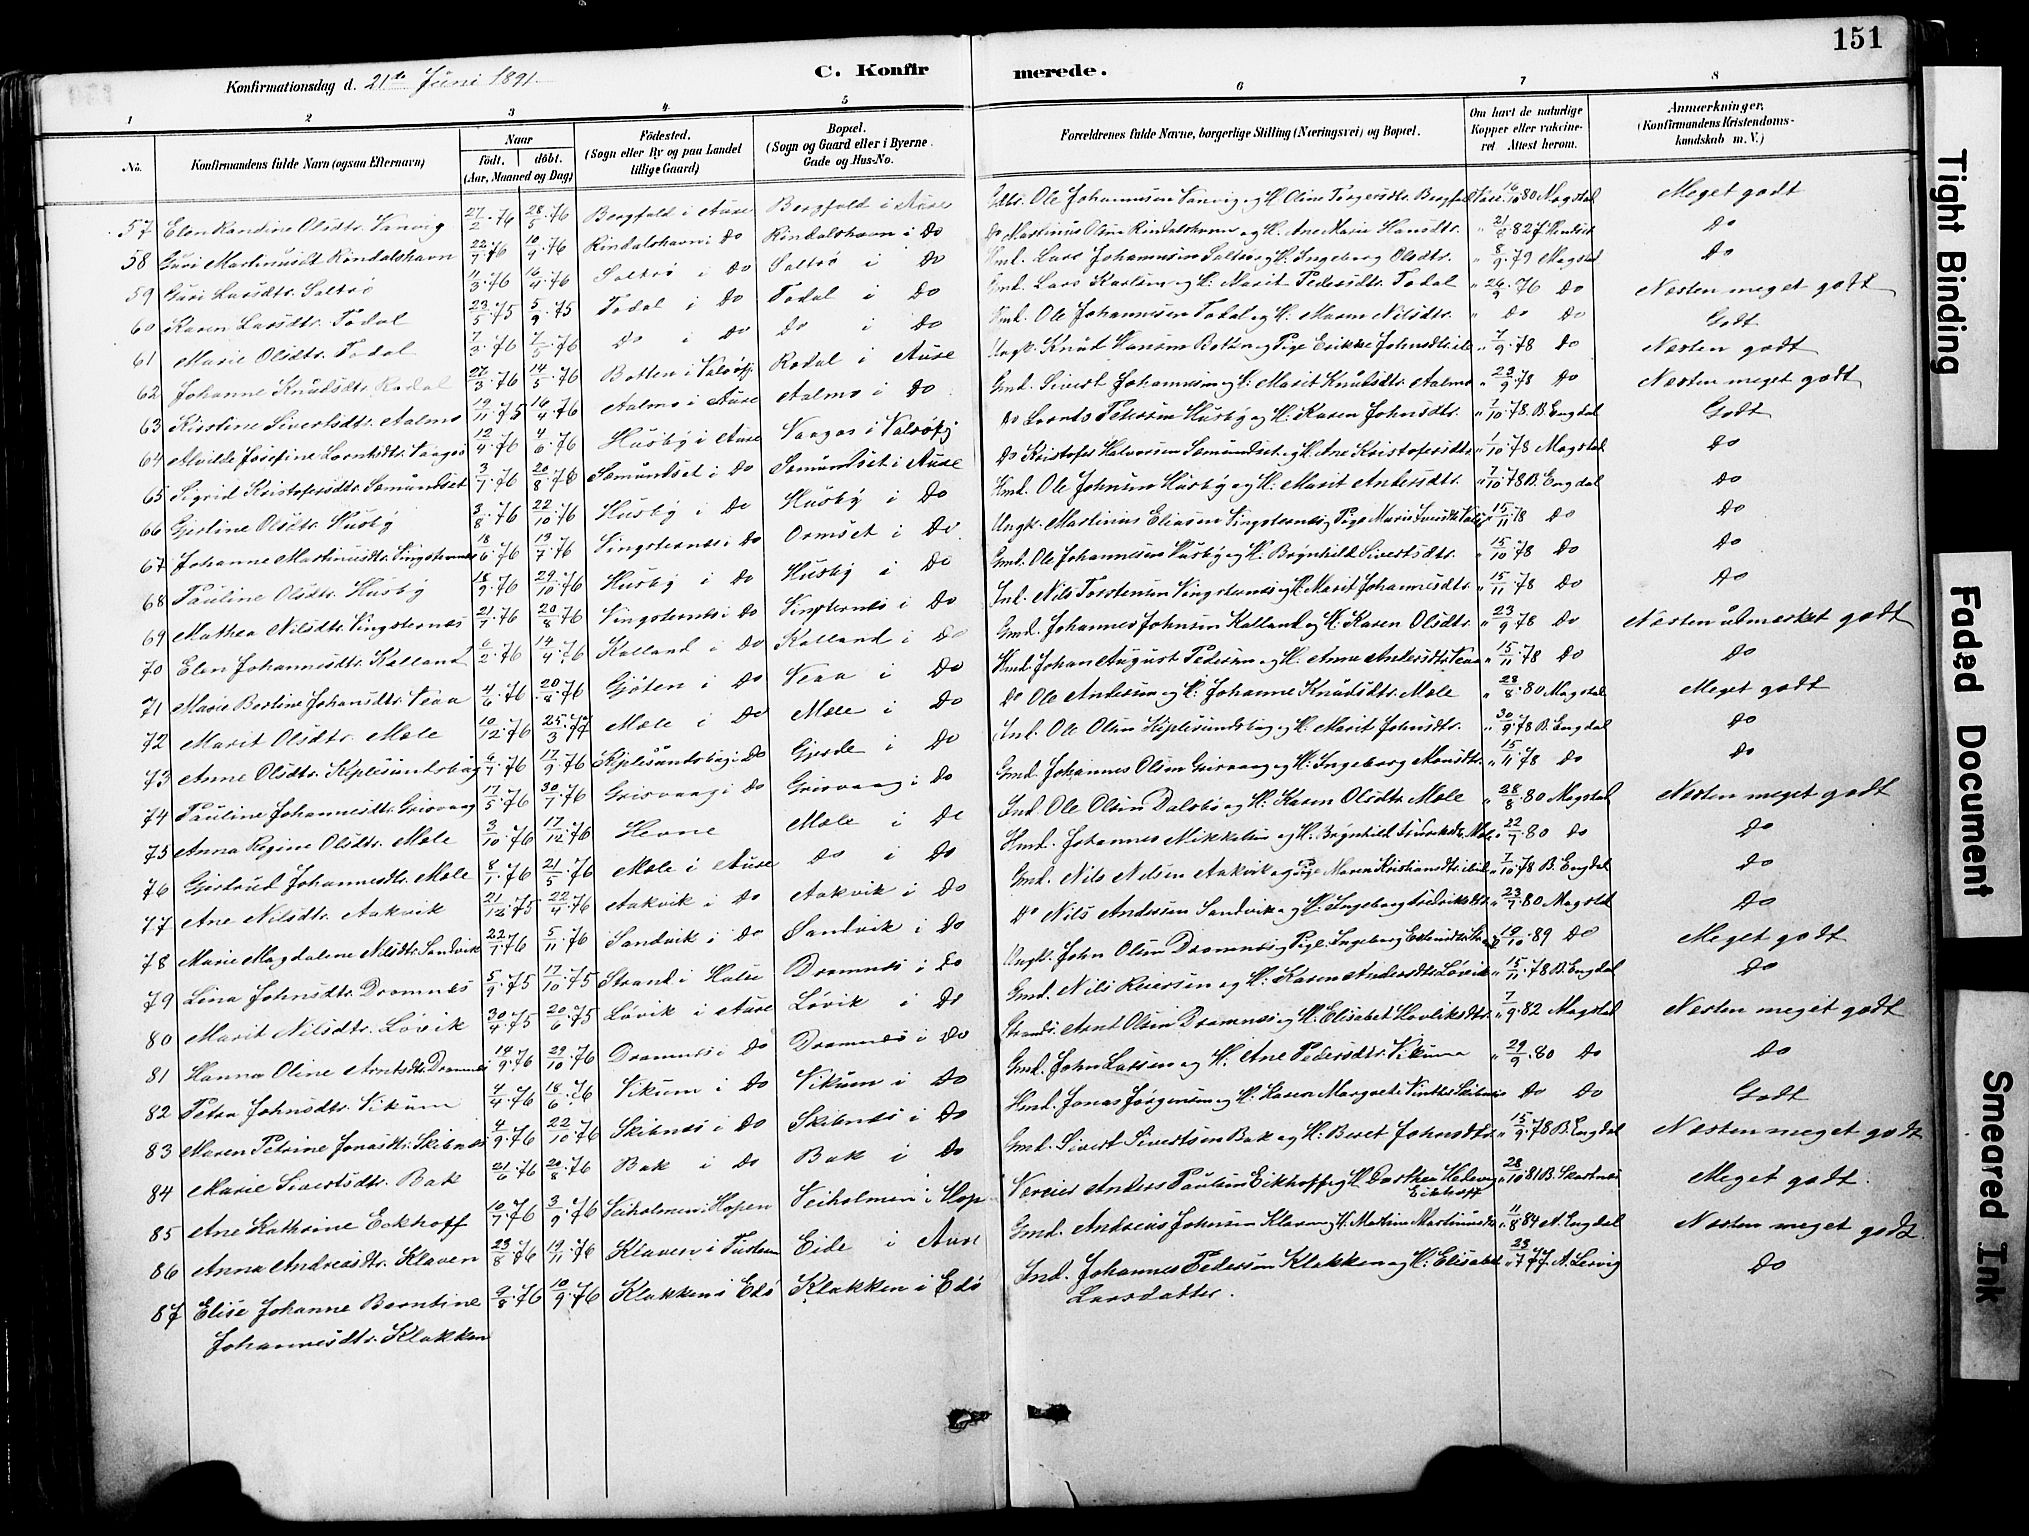 151
Konfirmationsdag d. 21de Juni 1891.
C. Konfirmerede.
1 2 3 4 5 6 7 8
No.
Konfirmandens fulde Navn (ogsaa Efternavn)
Naar
födt. döbt.
(Aar, Maaned og Dag)
Födested.
(Sogn eller By og paa Landet
tillige Gaard)
Bopæl.
(Sogn og Gaard eller i Byerne
Gade og Hus-No.
Forældrenes fulde Navne, borgerlige Stilling (Næringsvei) og Bopæl.
Om havt de naturlige
Kopper eller vakcine-
ret Attest herom.
Anmærkninger.
(Konfirmandens Kristendoms-
kundskab m. V.)
57 Elen Randine Olsdtr. Vanvig 27/2 76 28/5 76 Bergfald i Aure Bergfald i Aure Ole Johannesen Vanvig og H. Oline Torgersdtr. 16/10 80 Magstad Meget godt
58 Guri Martinusdt Rindalshavn 22/7 76 10/9 76 Rindalshavn i Do Rindalshavn i Do Do Martinus Olsen Rindalshavn og H. Ane Marie Hansdtr. Do
59 Guri Larsdtr. Saltrö 11/3 76 16/4 76 Saltrö i Do Saltrö i Do Lars Johannesen Saltrö og H. Ingeborg Olsdtr. 8/9 79 Magstad Do
60 Karen Larsdtr. Todal 23/5 75 5/9 75 Todal i Do Todal i Do Gmd. Lars Karlsen og H. Marit Pedersdtr. Todal 24/9 76 Do Næsten meget godt
61 Marie Olsdtr. Todal 7/3 76 7/5 76 Do i Do Do i Do Ole Johannesen Todal og H. Maren Nilsdtr. Do Do Godt
62 Johanne Knudsdtr. Rodal 27/3 76 14/5 76 Botten i Valsöfj. Rodal i Aure Ungk. Knud Hansen Botten og Pige Erikke Johnsdtr. 7/9 78 Do Næsten godt
63 Kirstine Sivertsdtr. Aalmo 19/11 75 16/4 76 Aalmo i Aure Aalmo i Do Gmd. Sivert Johannesen og H. Marit Knudsdtr. Aalmo 23/9 78 Do Næsten meget godt
64 Alvilde Josefine Lorntsdtr. Vaagos 12/4 76 4/6 76 Husby i Aure Vaagos i Valsöfj Do Lornts Petersen Husby og H. Karen Johnsdtr. 7/10 78 B. Engdal Godt
65 Sigrid Kristofersdtr. Semundset 3/7 76 20/8 76 Semundset i Do Semundset i Aure Do Kristofer Halvorsen Semundset og H. Ane Kristofersdtr. 1/10 78 Magstad Do
66 Gjertine Olsdtr. Husby 3/8 76 22/10 76 Husby i Do Husby i Do Ole Johnsen Husby og H. Marit Andersdtr. 7/10 78 B. Engdal Do
67 Johanne Martinusdtr. Vingsternes 18/6 76 13/7 76 Vingsternes i Do Ormset i Do Ungk. Martinius Eliasen Vingsternes og Pige Marie 15/11 78 Do Do
68 Pauline Olsdtr. Husby 18/9 76 29/10 76 Husby i Do Husby i Do Gmd. Ole Johannesen Husby og H. Brynhild Sivertsdtr. 15/10 78 Do Do
69 Mathea Nilsdtr. Vingsternes 21/7 76 20/8 76 Vingsternes i Do Vingsternes i Do Ind. Nils Torstensen Vingsternes og H. Marit Johannesdtr. 15/11 78 Do Do
70 Elen Johannesdtr. Kalland 6/2 76 14/4 76 Kalland i Do Kalland i Do Gmd. Johannes Johnsen Kalland og H. Karen Olsdtr. 23/9 78 Do Næsten udmærket godt
71 Marie Bertine Johansdtr. Veaa 4/6 76 20/8 76 Gjöten i Do Veaa i Do Johan August Pedersen og H. Anne Andersdtr. Veaa 15/11 78 Do Do
72 Marit Olsdtr. Mæle 10/12 76 25/3 77 Mæle i Do Mæle i Do Do Ole Andersen og H. Johanne Knudsdtr. Mæle 28/8 80 Magstad Meget godt
73 Anne Olsdtr. Kiplesundsbug 6/7 76 17/9 76 Kiplesundsbug i Do Gjerde i Do Ind. Ole Olsen Kiplesundsbug og H. Marit Johnsdtr. 30/9 78 B. Engdal Do
74 Pauline Johannesdtr. Grisvaag 17/5 76 30/7 76 Grisvaag i Do Grisvaag i Do Gmd. Johannes Olsen Grisvaag og H. Ingeborg Monsdtr. 15/11 78 Do Do
75 Anna Regine Olsdtr. Mæle 3/10 76 17/12 76 Hevne Mæle i Do Ind. Ole Olsen Dalsbö og H. Karen Olsdtr. Mæle 28/8 80 Magstad Næsten meget godt
76 Gjertrud Johannesdtr. Mæle 8/1 76 21/5 76 Mæle i Aure Do i Do Johannes Mikkelsen og H. Brynhild 22/7 80 Do Do
77 Ane Nilsdtr. Aakvik 21/12 75 22/4 76 Aakvik i Do Aakvik i Do Gmd. Nils Nilsen Aakvik og Pige Maren Kristiansdtr. 7/10 78 B. Engdal Do
78 Marie Magdalene Nilsdtr. Sandvik 22/7 76 5/11 76 Sandvik i Do Sandvik i Do Do Nils Andersen Sandvik og H. Ingeborg Fredriksdtr. 23/7 80 Magstad Do
79 Lina Johnsdtr. Dromnes 5/9 75 17/10 75 Strand i Halse Dromnes i Do Ungk. John Olsen Dromnes og Pige Ingeborg 19/10 89 Do Meget godt
80 Marit Nilsdtr. Lövik 30/4 75 20/6 75 Lövik i Aure Lövik i Do Gmd. Nils Reiersen og H. Karen Andersdtr. Lövik 15/11 78 B. Engdal Do
81 Hanna Oline Arntsdtr. Dromnes 14/9 76 29/10 76 Dromnes i Do Dromnes i Do Arnt Olsen Dromnes og H. Elisabet 7/9 82 Magstad Næsten meget godt
82 Petra Johnsdtr. Vikum 4/4 76 18/6 76 Vikum i Do Vikum i Do Gmd. John Larsen og H. Ane Pedersdtr. Vikum 29/9 80 Do Do
83 Maren Petrine Jonasdtr. Skibnes 4/9 76 22/10 76 Skibnes i Do Skibnes i Do Jonas Jörgensen og H. Karen Margrete Do Do Godt
84 Marie Sivertsdtr. Bak 21/6 76 20/8 76 Bak i Do Bak i Do Gmd. Sivert Sivertsen Bak og H. Beret Johnsdtr. 15/9 78 B. Engdal Næsten meget godt
85 Ane Kathrine Eckhoff 10/7 76 3/9 76 Veiholmen i Hopen Veiholmen i Hop Anders Paulsen Eckhoff og H. Dorthea Hedevig 28/10 81 B. Skartnes Meget godt.
Eckhoff
86 Anna Andreasdtr. Klaven 23/8 76 19/11 76 Klaven i Tustern Eide i Aure Gmd. Andreas Johnsen Klaven og H. Martine Martinusdtr. 11/8 84 N. Engdal Næsten meget godt.
87 Elise Johanne Berntine 9/8 76 10/9 76 Klakken i Edö Klakken i Edö Ind. Johannes Pedersen Klakken og H. Elisabet 23/7 77 A. Lervig Do
Johannesdtr. Klakken Larsdatter.
Tight Binding
Faded Document
Smeared Ink